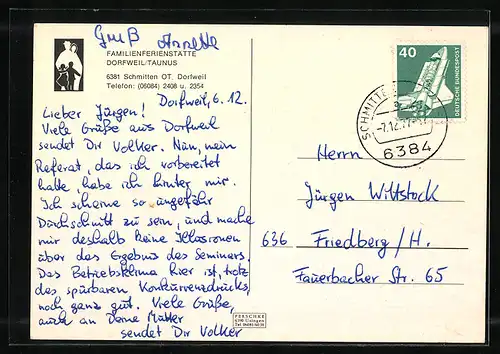 Gruß Annette
FAMILIENFERIENSTÄTTE
DORFWEIL/TAUNUS
6381 Schmitten OT. Dorfweil
Telefon: (06084) 2408 u. 2354
Dorfweil, 6.12.
Lieber Jürgen!
Viele Grüße aus Dorfweil
sendet Dir Volker. Nun, mein
Referat, das ich vorbereitet
hatte, habe ich hinter mir.
Ich scheine so ungefähr
Durchschnitt zu sein, und mache
mir deshalb keine Illusionen
über das Ergebnis des Seminars.
Das Betriebsklima hier ist, trotz
des spürbaren Konkurrenzdrucks,
noch ganz gut. Viele Grüße,
auch an Deine Mutter
sendet Dir Volker
PERSCHKE
6390 Usingen
40
DEUTSCHE BUNDESPOST
SCHMITTEN
a
-7.12.77
6384
Herrn
Jürgen Wiltstock
636 Friedberg/H.
Fauerbacher Str. 65